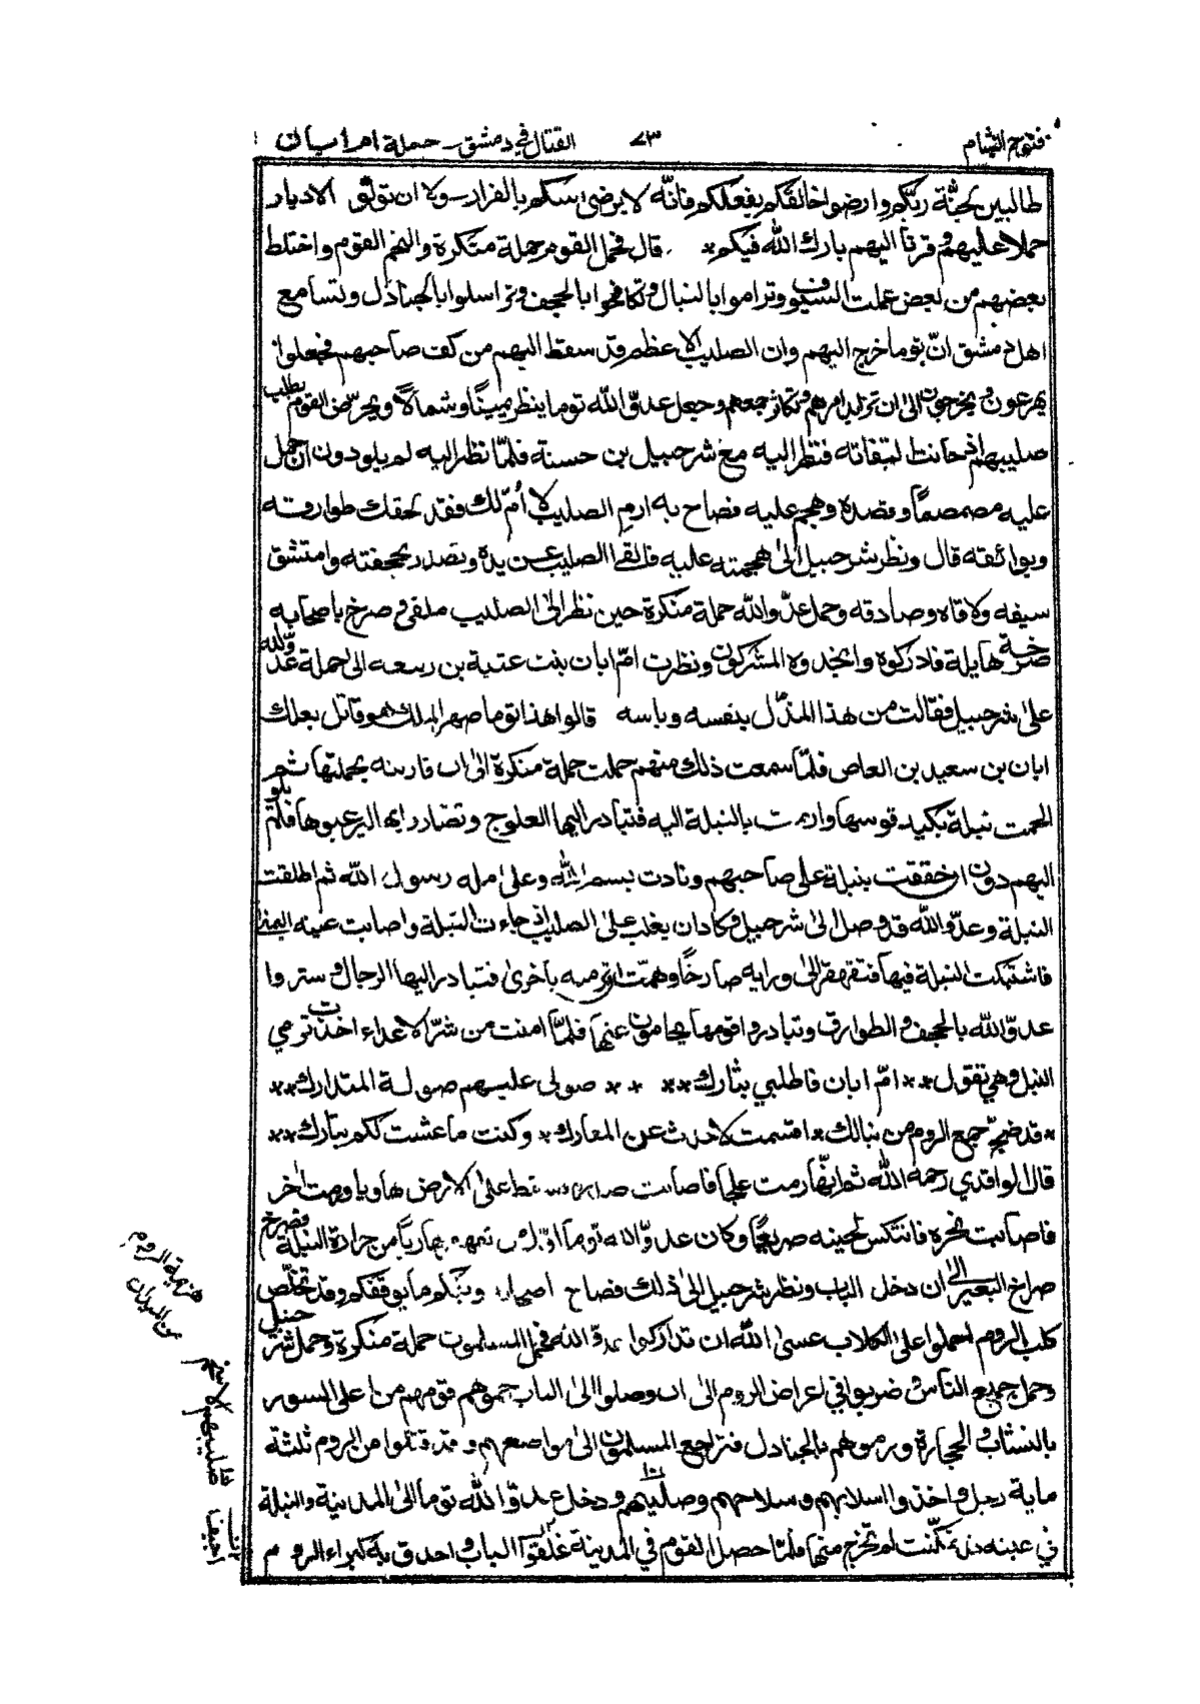 فتوح الشام ٧٣ القتال في دمشق - حملة ام ابان
طالبين لجنّة ربّكم وارضوا خالقكم بفعلكم فانّه لا يرضى منكم بالفرار ولا ان تولّو الادبار
حملا عليهم وقرنا اليهم بارك الله فيكم * قال فحمل القوم حملة متكرة والتحم القوم واختلط
بعضهم من بعض عملت السيوف وتراموا بالنبال وتكافحوا بالحجف وتراسلوا بالجنادل وتسامع
اهل دمشق انّ توما خرج اليهم وان الصليب الاعظم قد سقط اليهم من كف صاحبهم فجعلوا
يهرعون ويخرجون الى ان تزايد امرهم وتكاثر جمعهم وجعل عدوّ الله توما ينظر يمينًا وشمالاً ويحرّض القوم بطلب
صليبهم اذ حانت لتفاته فنظر اليه مع شرحبيل بن حسنة فلمّا نظر اليه لم يلو دون ان حمل
عليه مصمصمًا وقصده وهجم عليه فصاح به ارمِ الصليب لا اُمّ لك فقد لحقك طوارقه
وبوائقه قال ونظر شرحبيل الى هجمته عليه فالقى الصليب عن يده وتصدر بحجفته وامتشق
سيفه ولاقاه وصادقه وحمل عدّو الله حملة منكرة حين نظر الى الصليب ملقى وصرخ باصحابه
صرخة هايلة فادركوه وانجدوه المشركون ونظرت امّ ابان بنت عتبة بن ربيعه الى حملة عدّو الله
على شرحبيل فقالت من هذا المذّل بنفسه وباسه قالوا هذا توما صهر الملك هو قاتل بعلك
ابان بن سعيد بن العاص فلمّا سمعت ذلك منهم حملت حملة منكرة الى ان قاربته بحملتها ثم
الحمت نبلة بكبد قوسها وارمت بالنبلة اليه فتبادر اليها العلوج وتصادرا به اليرعبوها فلم تلو
اليهم دون ان خققت بنبلة على صاحبهم ونادت بسم الله وعلى مله رسول الله ثم اطلقت
النبلة وعدّو الله قد وصل الى شرحبيل وكاد ان يغلب على الصليب اذ جاءت النبلة واصابت عينه اليمنى
فاشتبكت النبلة فيها فتقهقر الى ورايه صارخًا وهمّت ان ترميه باخرى فتبادر اليها الرجال وستروا
عدوّ الله بالحجف والطوارق وتبادروا قومها يحامون عنها فلمّا امنت من شرّ الاعداء اخذت ترمي
النبل وهي تقول ** امّ ابان فاطلبي بثارك ** * * صولي عليهم صولة المتدارك **
* قد ضجّ جمع الروم من نبالك * اقسمت لا حدث عن المعارك * وكنت ما عشت لكم بتارك **
قال الواقدي رحمه الله ثم انّها رمت علجا فاصابت صدره وسقط على الارض هاويا ورمت اٰخر
فاصابت نحره فانتكس لحينه صريعًا وكان عدوّ الله توما اوّل من هارباً من حرارة النبلة وصرخ
صراخ البعير الى ان دخل الباب ونظر شرحبيل الى ذلك فصاح ويلكم ما يوقفكم وقد تخلّص
كلب الروم احملوا على الكلاب عسى الله ان تداركوا عدوّ الله فحمل المسلمون حملة منكرة وحمل شرحبيل
وحمل جميع الناس وضربوا في اعراض الروم الى ان وصلوا الى الباب حموهم قومهم من اعلى السور
بالنشاب والحجارة ويرموهم بالجنادل فتراجع المسلمون الى مواضعهم وقد قتلوا من الروم ثلثة
ماية رجل واخذوا اسلابهم وسلاحهم وصليبهم ودخل عدوّ الله توما الى المدينة والنبلة
في عينه قد تمكّنت لم تخرج منها فلمّا حصل القوم في المدينة غلقوا الباب واحدق به كبراء الروم
هزيمة الروم
من الميدان